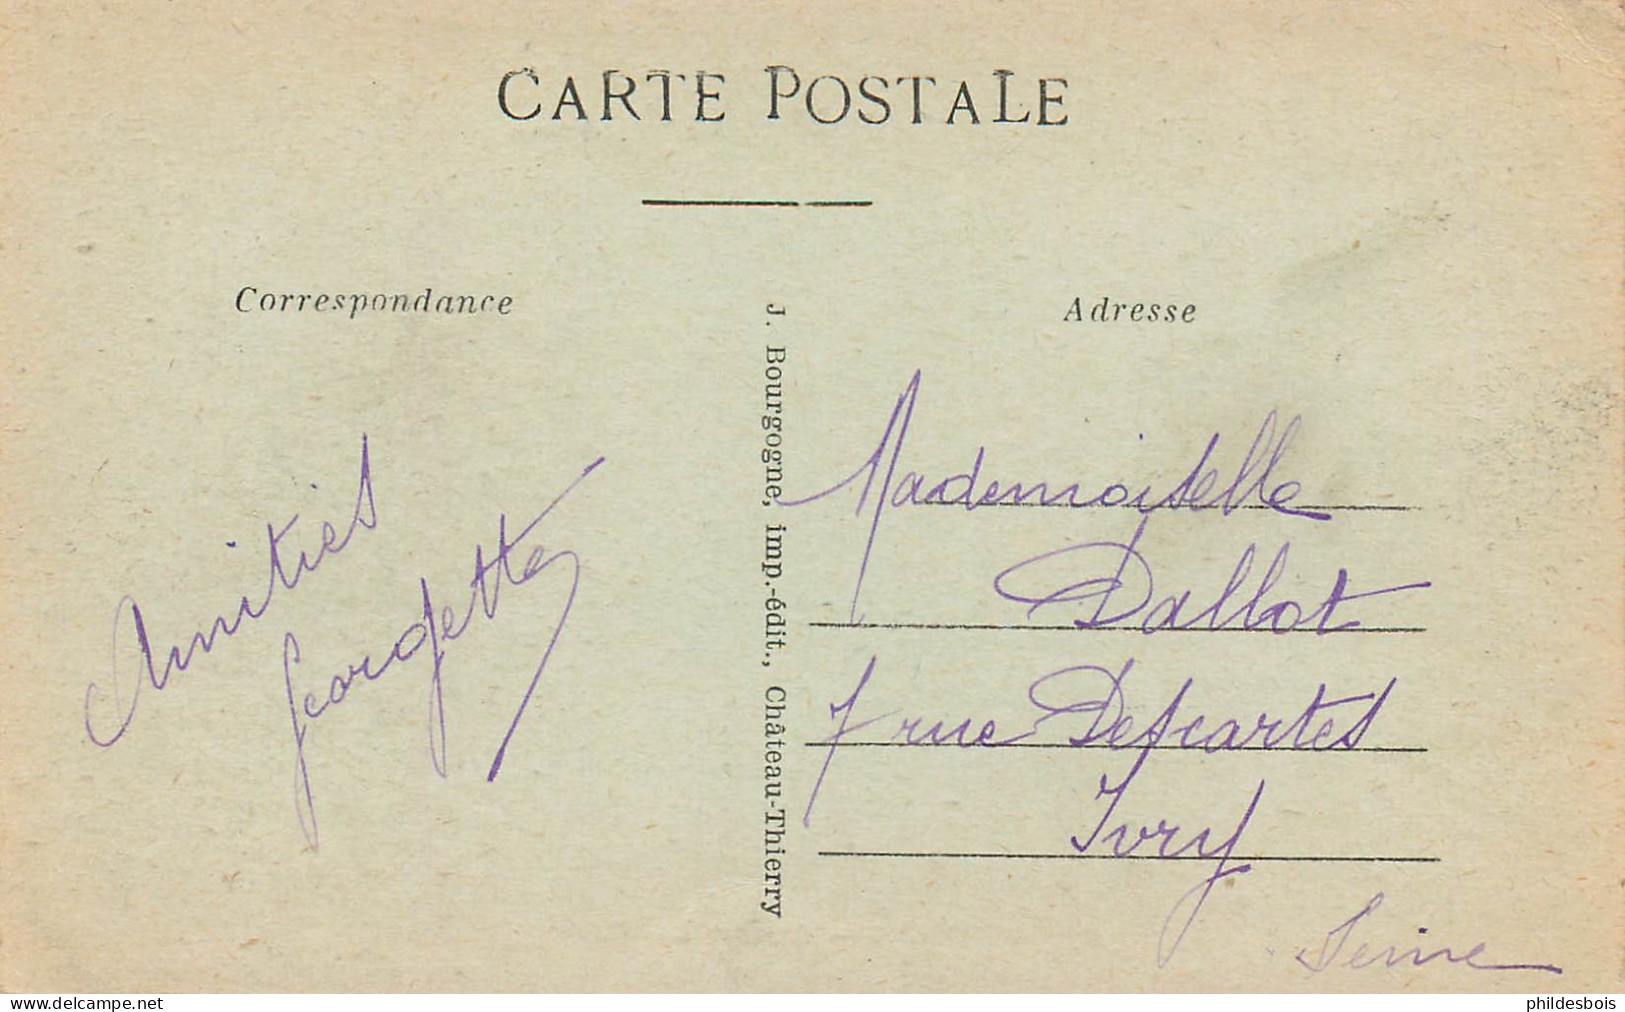 CARTE POSTALE
Correspondance
Amitiés
Georgette
J. Bourgogne, imp.-édit., Château-Thierry
Adresse
Mademoiselle
Dallot
7 rue Descartes
Ivry
Seine
www.delcampe.net
phildesbois